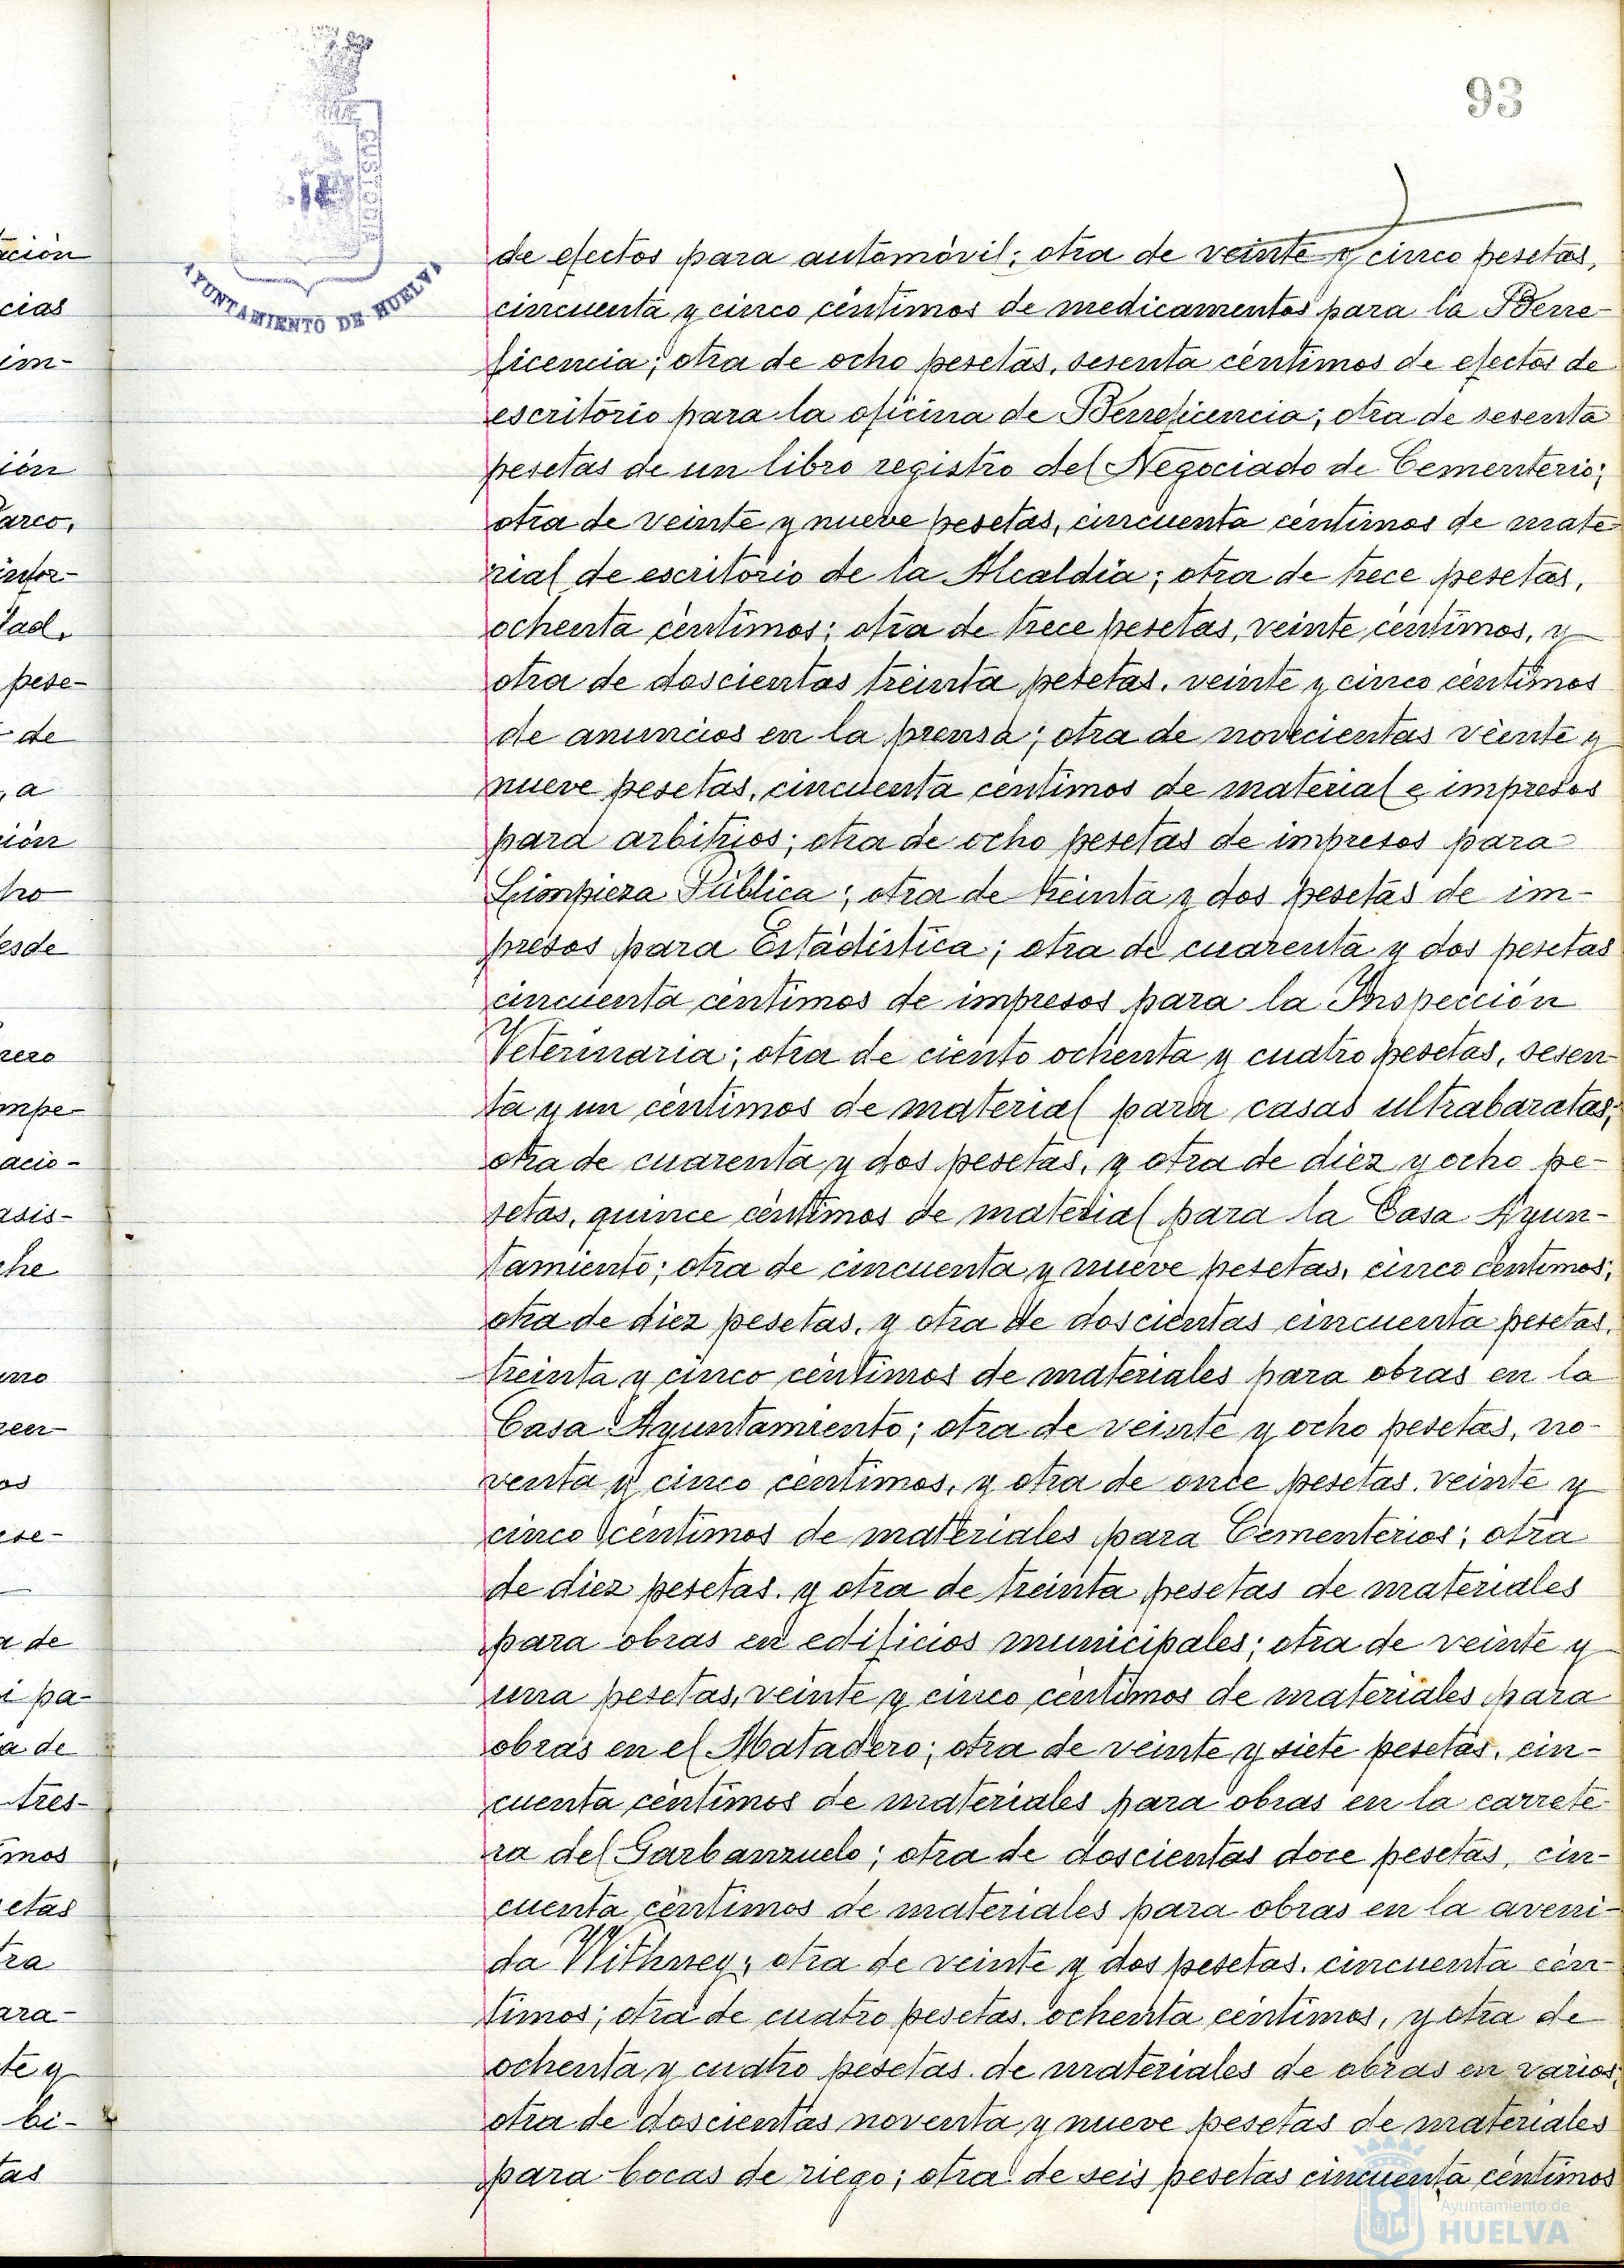 93
CUSTODIA
AYUNTAMIENTO DE HUELVA
de efectos para automóvil; otra de veinte y cinco pesetas,
cincuenta y cinco céntimos de medicamentos para la Bene-
ficencia; otra de ocho pesetas, sesenta céntimos de efectos de
escritorio para la oficina de Beneficencia; otra de sesenta
pesetas de un libro registro del Negociado de Cementerio;
otra de veinte y nueve pesetas, cincuenta céntimos de mate
rial de escritorio de la Alcaldía; otra de trece pesetas,
ochenta céntimos; otra de trece pesetas, veinte céntimos, y
otra de doscientas treinta pesetas, veinte y cinco céntimos
de anuncios en la prensa; otra de novecientas veinte y
nueve pesetas, cincuenta céntimos de material e impresos
para arbitrios; otra de ocho pesetas de impresos para
Limpieza Pública; otra de treinta y dos pesetas de im-
presos para Estadística; otra de cuarenta y dos pesetas
cincuenta céntimos de impresos para la Inspección
Veterinaria; otra de ciento ochenta y cuatro pesetas, sesen-
ta y un céntimos de material para casas ultrabaratas;
otra de cuarenta y dos pesetas, y otra de diez y ocho pe-
setas, quince céntimos de material para la Casa Ayun-
tamiento; otra de cincuenta y nueve pesetas, cinco céntimos;
otra de diez pesetas, y otra de doscientas cincuenta pesetas,
treinta y cinco céntimos de materiales para obras en la
Casa Ayuntamiento; otra de veinte y ocho pesetas, no-
venta y cinco céntimos, y otra de once pesetas, veinte y
cinco céntimos de materiales para Cementerios; otra
de diez pesetas, y otra de treinta pesetas de materiales
para obras en edificios municipales; otra de veinte y
una pesetas, veinte y cinco céntimos de materiales para
obras en el Matadero; otra de veinte y siete pesetas, cin-
cuenta céntimos de materiales para obras en la carrete-
ra del Garbanzuelo; otra de doscientas doce pesetas, cin-
cuenta céntimos de materiales para obras en la aveni-
da Withney; otra de veinte y dos pesetas, cincuenta cén-
timos; otra de cuatro pesetas, ochenta céntimos, y otra de
ochenta y cuatro pesetas de materiales de obras en varios;
otra de doscientas noventa y nueve pesetas de materiales
para bocas de riego; otra de seis pesetas cincuenta céntimos
Ayuntamiento de
HUELVA